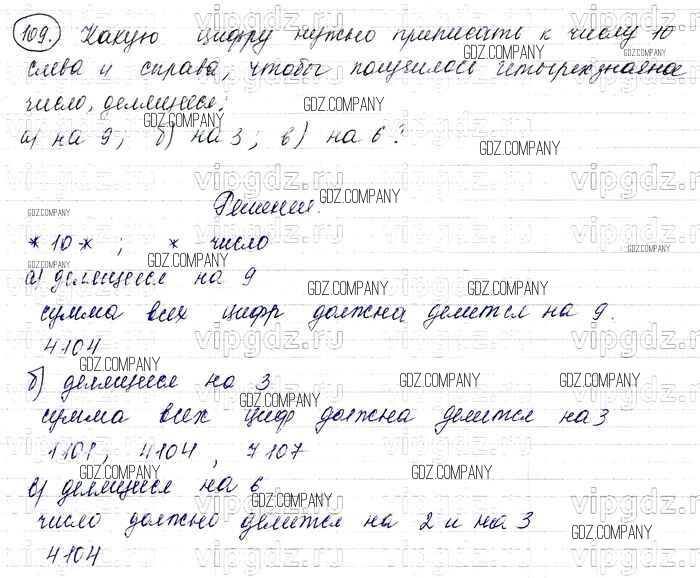 109. Какую цифру нужно приписать к числу 10
слева и справа, чтобы получилось четырехзначное
число, делящееся:
а) на 9; б) на 3; в) на 6?
Решение.
*10*; * число
а) делящееся на 9
сумма всех цифр должна делится на 9.
4104
б) делящиеся на 3
сумма всех цифр должна делится на 3
1101, 4104, 7107
в) делящиеся на 6
число должно делится на 2 и на 3
4104
GDZ.COMPANY
vipgdz.ru